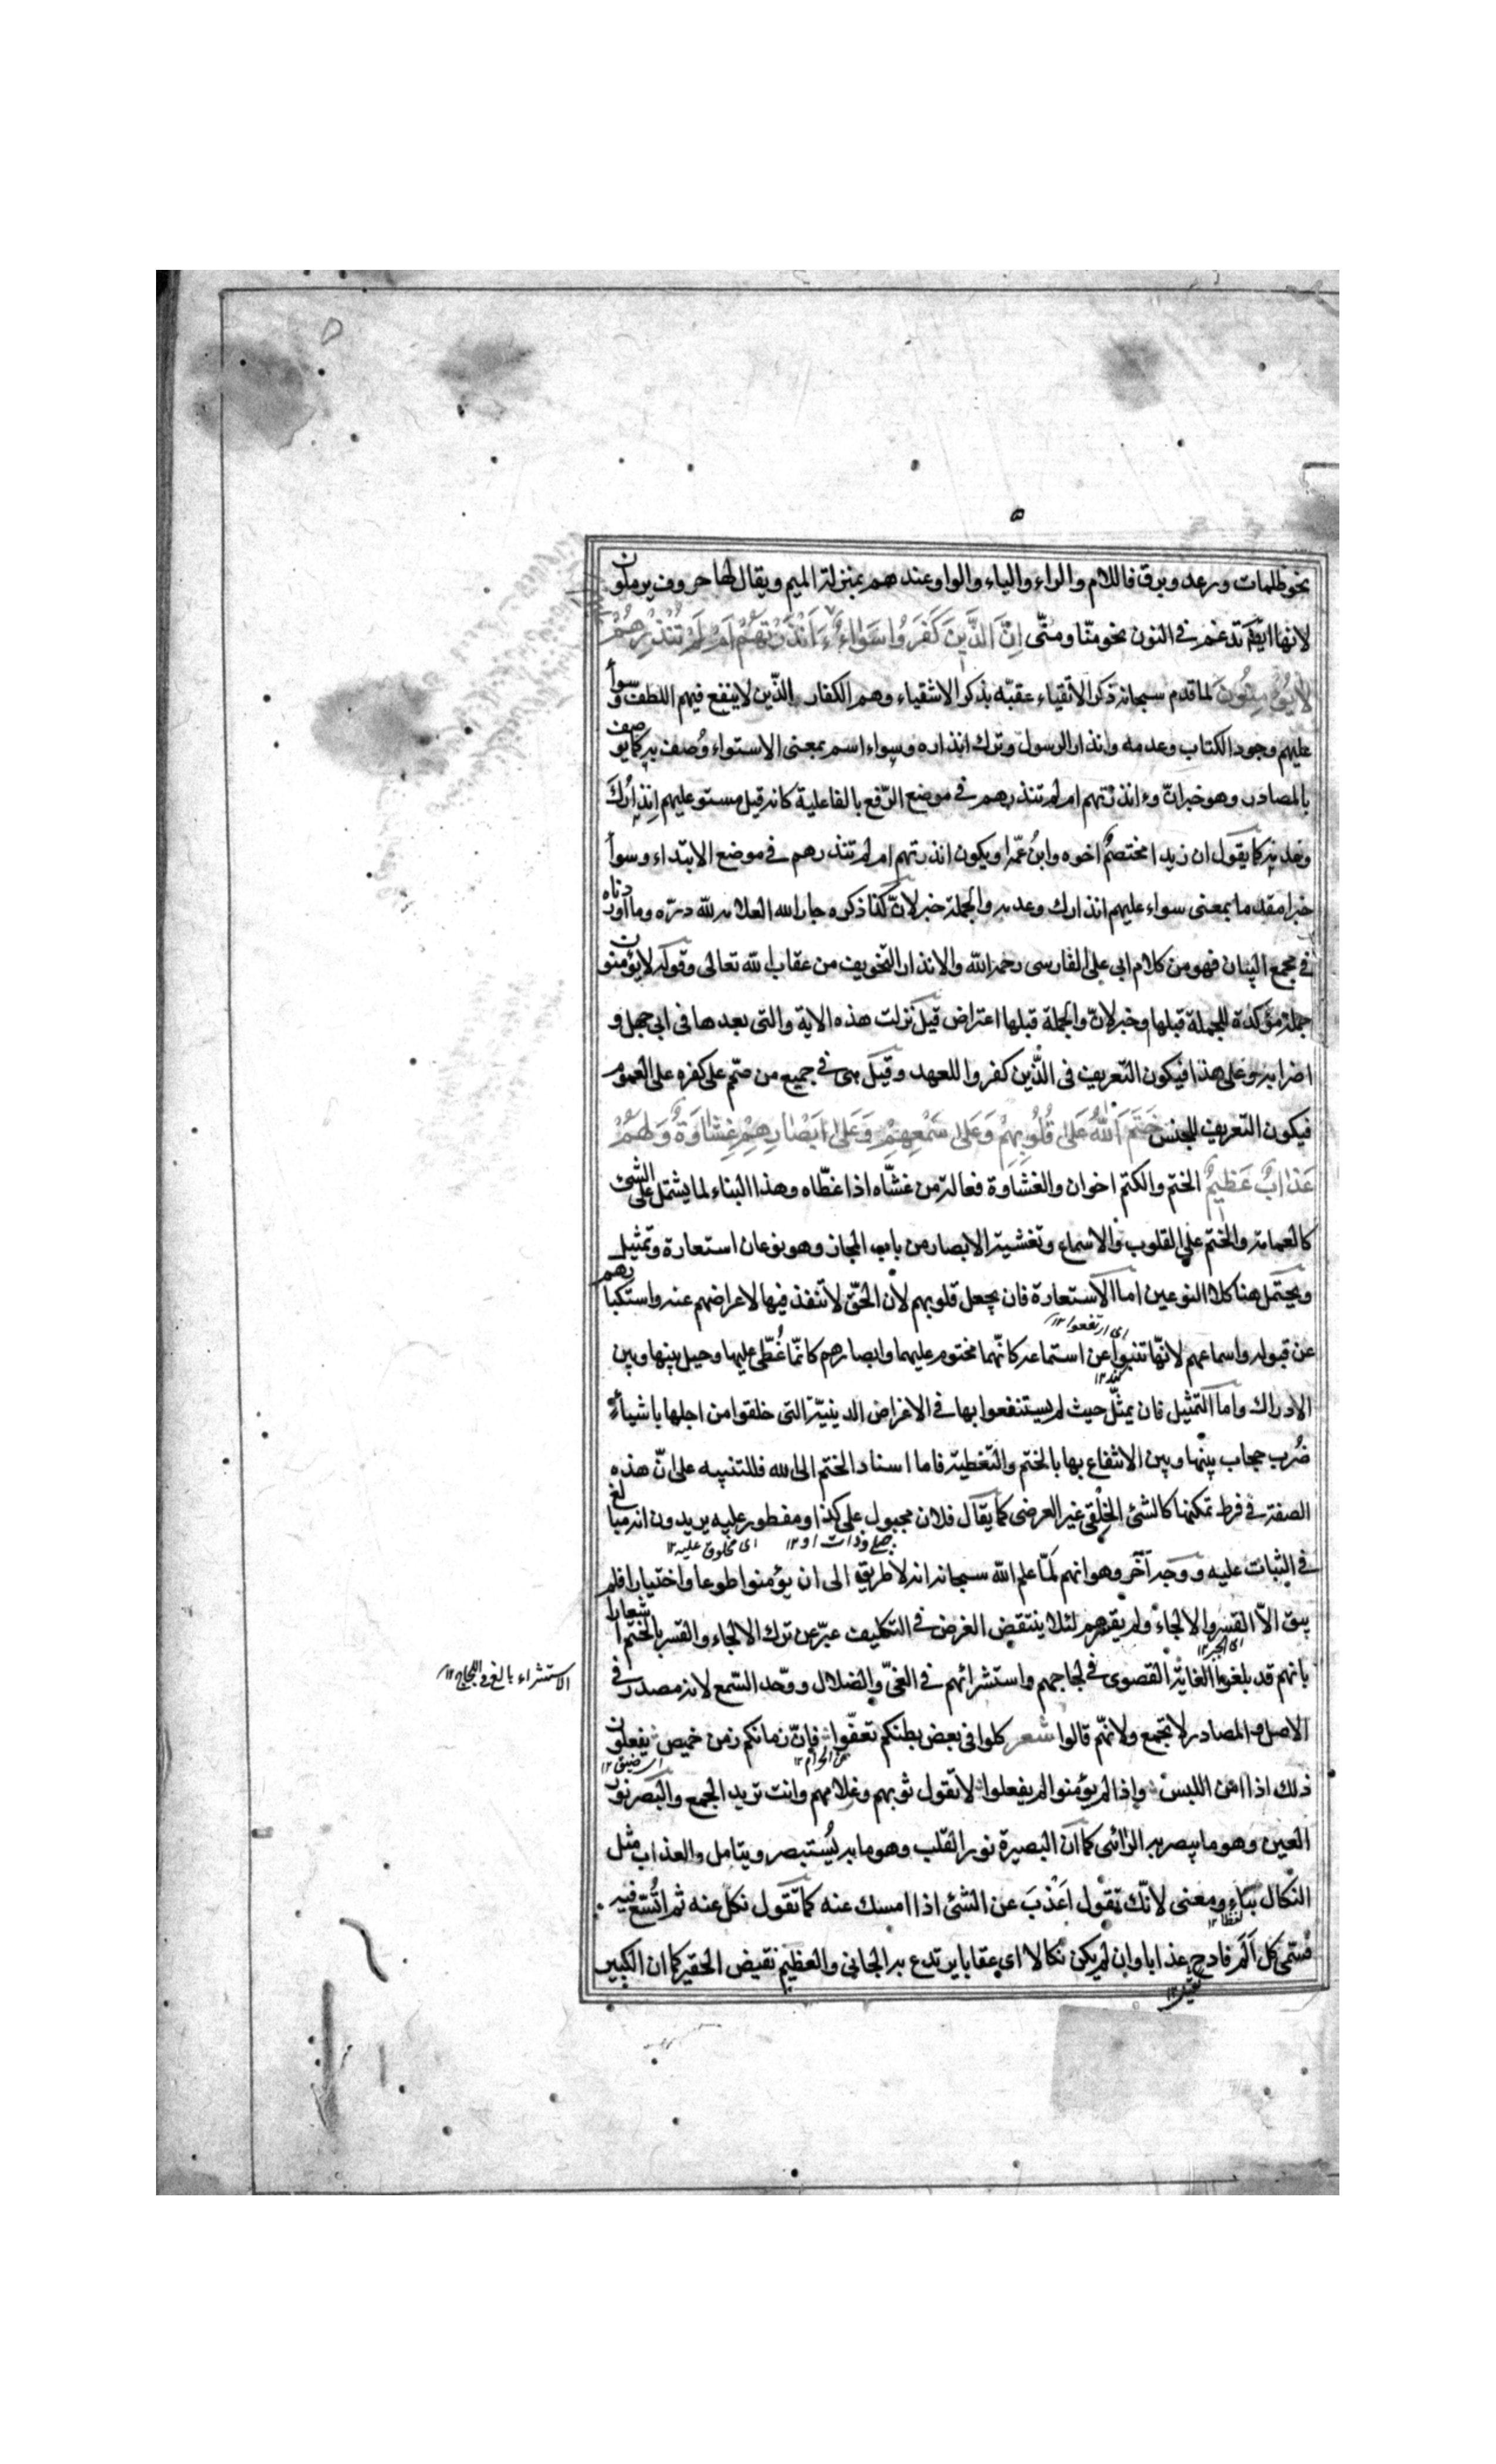 نحو ظلمات ورعد وبرق فاللام والراء والياء والواو عندهم بمنزلة الميم ويقال لها حروف يرملون
لانها ايضا تدغم في النون نحو منّا ومنّى اِنَّ الَّذِينَ كَفَرُوا سَوَاءٌ ءَاَنْذَرْتَهُمْ اَمْ لَمْ تُنْذِرْهُمْ
لَا يُؤْمِنُونَ لما قدم سبحانه ذكر الاتقياء عقبّه بذكر الاشقياء وهم الكفار الذّين لا ينفع فيهم اللطف وسوآء
عليهم وجود الكتاب وعدمه وانذار الرسول وترك انذاره وسواء اسم بمعنى الاستواء وُصف به كما يوصف
بالمصادر وهو خبر انّ وءانذرتهم ام لم تنذرهم في موضع الرّفع بالفاعلية كانه قيل مستو عليهم اِنذارُك
وعدمه كما يقول ان زيدا مختصمٌ اخوه وابنُ عمّه او يكون انذرتهم ام لم تنذرهم في موضع الابتداء وسوآء
خبرا مقدما بمعنى سواء عليهم انذارك وعدمه والجملة خبر لانّ كذا ذكره جار الله العلامه لله درّه وما اوردناه
في مجمع البيان فهو من كلام ابي على الفارسى رحمه الله والانذار التخويف من عقاب الله تعالى وقوله لا يؤمنون
جملة مؤكدة للجملة قبلها وخبر لانّ والجملة قبلها اعتراض قيل نزلت هذه الاية والتى بعدها فى ابى جهل و
اضرابه وعلى هذا فيكون التّعريف فى الّذين كفروا للعهد وقيل هى في جميع من صمّم على كفره على العموم
فيكون التّعريف للجنس خَتَمَ اللّٰهُ عَلىٰ قُلُوبِهِمْ وَعَلىٰ سَمْعِهِمْ وَعَلىٰ اَبْصَارِهِمْ غِشَاوَةٌ وَلَهُمْ
عَذَابٌ عَظِيمٌ الختم والكتم اخوان والغشاوة فعالة من غشّاه اذا غطّاه وهذا البناء لما يشتمل على الشئ
كالعمامة والختم على القلوب والاسماع وتغشية الابصار من باب المجاز وهو نوعان استعارة وتمثيل
ويحتمل هنا كلا النوعين اما الاستعارة فان يجعل قلوبهم لأن الحقّ لا تنفذ فيها لاعراضهم عنه واستكبارهم
اى ارتفعوا ١٢
عن قبوله واسماعهم لانّها تنبوا عن استماعه كانّهما مختوم عليهما وابصارهم كانّما غُطّى عليها وحيل بينها وبين
الادراك واما التمثيل فان يمثّل حيث لم يستنفعوا بها في الاغراض الدينيّة التى خلقوا من اجلها باشياء
ضُرب حجاب بينها وبين الانتفاع بها بالختم والتّغطية فاما اسناد الختم الى الله فللتنبيه على انّ هذه
الصفة في فرط تمكنها كالشئ الخِلْقى غير العرضى كما يقال فلان مجبول على كذا ومفطور عليه يريدون انه مبالغ
اى مخلوق عليه ١٢
في الثبات عليه ووجه آخر وهو انهم لمّا علم الله سبحانه انه لا طريق الى ان يؤمنوا طوعا واختيارا فلم
يبق الاّ القسر والالجاء ولم يقسرهم لئلا ينتقض الغرض في التكليف عبّر عن ترك الالجاء والقسر بالختم اشعارا
اى الجبر ١٢
بانهم قد بلغوا الغاية القصوى في لجاجهم واستشرائهم في الغىّ والضلال ووحّد السّمع لانه مصدر في
الاستشراء بالغ في اللجاج ١٢
الاصل والمصادر لا تجمع ولانهّم قالوا شعر كلوا فى بعض بطنكم تعفّوا فإنّ زمانكم زمن خميص يفعلون
عن الحرام ١٢
اى ضيق ١٢
ذلك اذا امن اللبس واذا لم يؤمنوا لم يفعلوا لا تقول ثوبهم وغلامهم وانت تريد الجمع والبَصر نور
العين وهو ما يبصر به الرّائى كما انّ البصيرة نور القلب وهو ما به يُستبصر ويتامل والعذاب مثل
النّكال بناءً ومعنى لانّك تقول اعذَبَ عن الشئ اذا امسك عنه كما تقول نكل عنه ثم اتُّسع فيه
لفظا ١٢
فسمّى كل اَلَم فادح عذابا وان لم يكن نكالا اى عقابا يرتدع به الجانى والعظيم نقيض الحقير كما ان الكبير
ثقيل ١٢